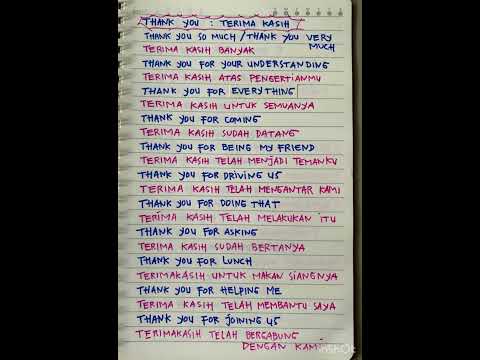 THANK YOU : TERIMA KASIH
THANK YOU SO MUCH / THANK YOU VERY MUCH
TERIMA KASIH BANYAK
THANK YOU FOR YOUR UNDERSTANDING
TERIMA KASIH ATAS PENGERTIANMU
THANK YOU FOR EVERYTHING
TERIMA KASIH UNTUK SEMUANYA
THANK YOU FOR COMING
TERIMA KASIH SUDAH DATANG
THANK YOU FOR BEING MY FRIEND
TERIMA KASIH TELAH MENJADI TEMANKU
THANK YOU FOR DRIVING US
TERIMA KASIH TELAH MENGANTAR KAMI
THANK YOU FOR DOING THAT
TERIMA KASIH TELAH MELAKUKAN ITU
THANK YOU FOR ASKING
TERIMA KASIH SUDAH BERTANYA
THANK YOU FOR LUNCH
TERIMAKASIH UNTUK MAKAN SIANGNYA
THANK YOU FOR HELPING ME
TERIMA KASIH TELAH MEMBANTU SAYA
THANK YOU FOR JOINING US
TERIMAKASIH TELAH BERGABUNG
DENGAN KAMI